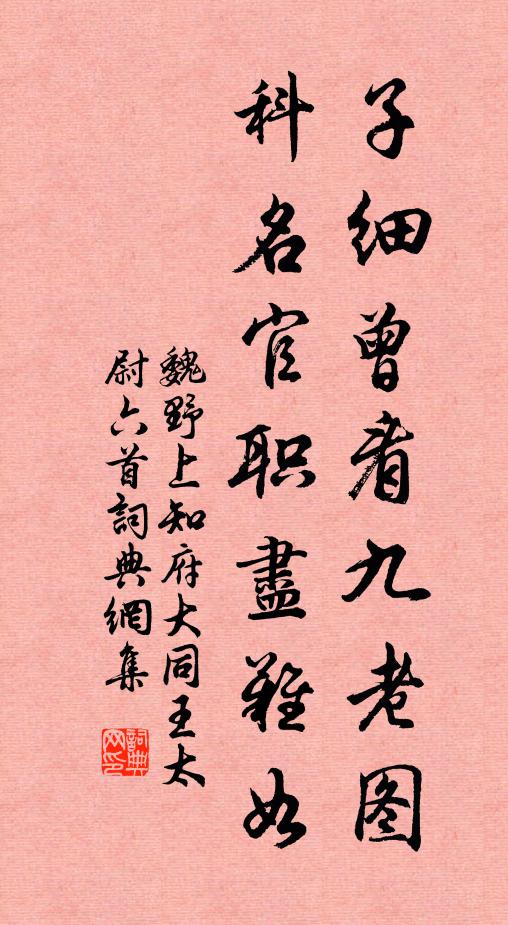 子细曾看九老图
科名官职盡難如
魏野上知府大同王太
尉六首詞典網集
詞典
网印